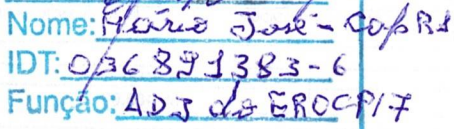 Nome: Mário José - Cap R1
IDT: 036891383-6
Função: ADJ do EROCP/7